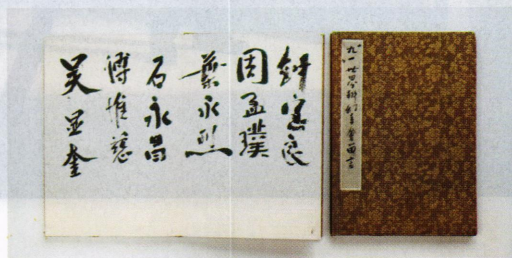 良
周孟璞
葉永烈
石永昌
傅惟慈
吴显奎
九一世界科幻年會留言